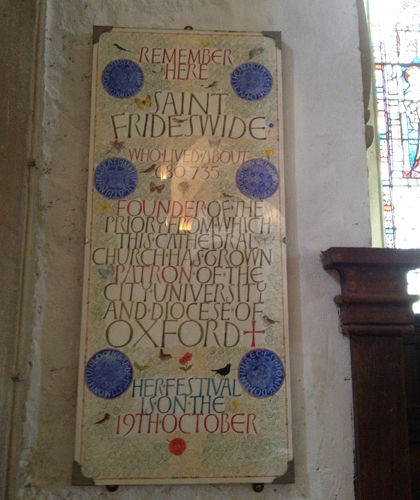 REMEMBER
HERE
SAINT
FRIDESWIDE
WHO·LIVED·ABOUT
680 735
FOUNDER OF THE
PRIORY FROM WHICH
THIS CATHEDRAL
CHURCH HAS GROWN
PATRON OF THE
CITY·UNIVERSITY
AND DIOCESE OF
OXFORD
HER FESTIVAL
IS ON THE
19TH OCTOBER